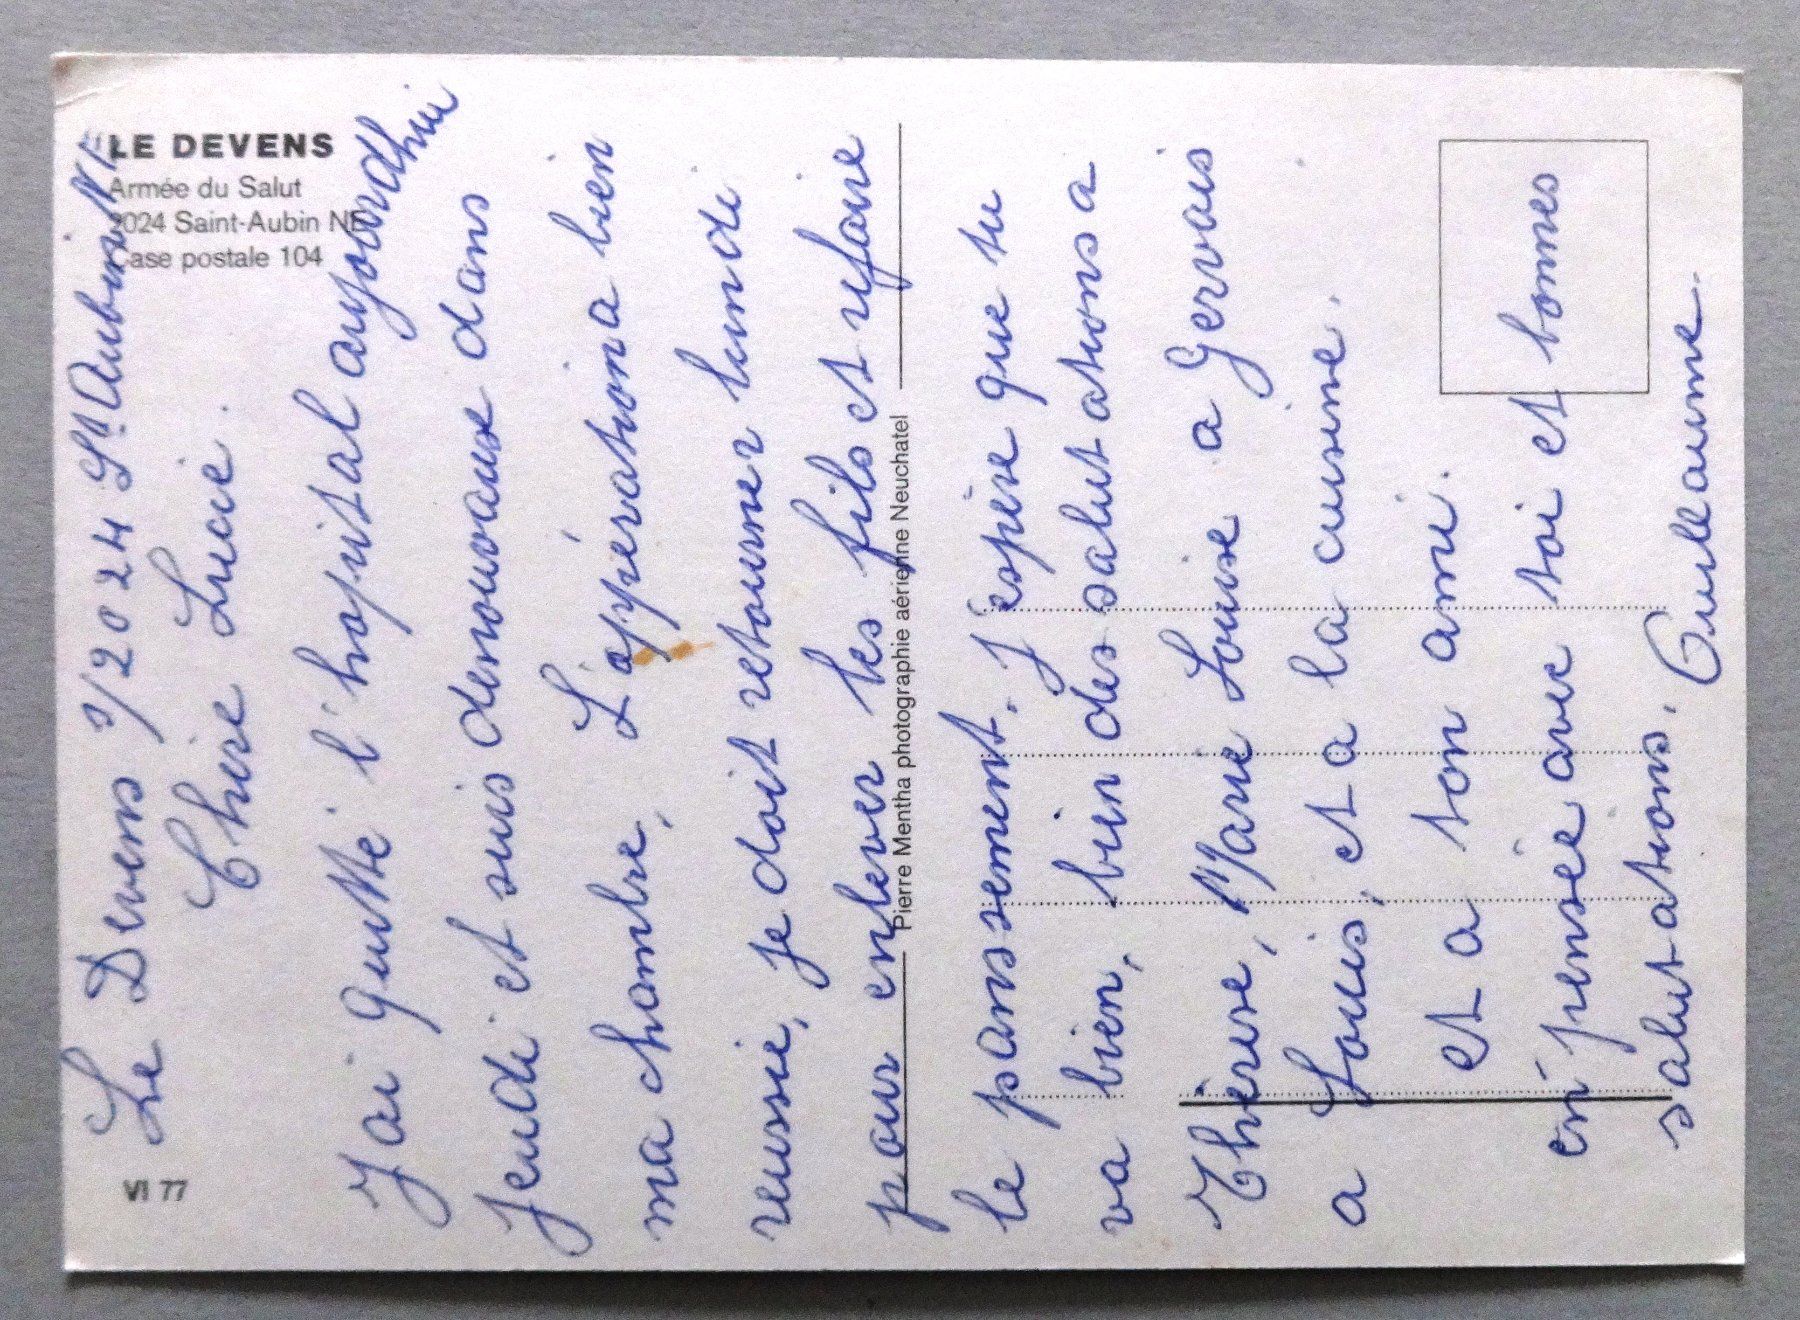 LE DEVENS
Armée du Salut
2024 Saint-Aubin NE
Case postale 104
VI 77
Pierre Mentha photographie aérienne Neuchatel
Le Devens 2024 St Aubin NE
Chère Lucie.
J'ai quitté l'hopital aujourdhui
jeudi et suis denouvaux dans
ma chambre. L'oppération a bien
reussie, je doit retourner lundi
pour enlever les fils et refaire
le panssement. J'espère que tu
va bien, bien des salutations a
Thérèse, Marie Louise a Gervais
a Louis, et a la cuisine.
et a ton ami.
en pensée avec toi et bonnes
salutations. Guilleaume.